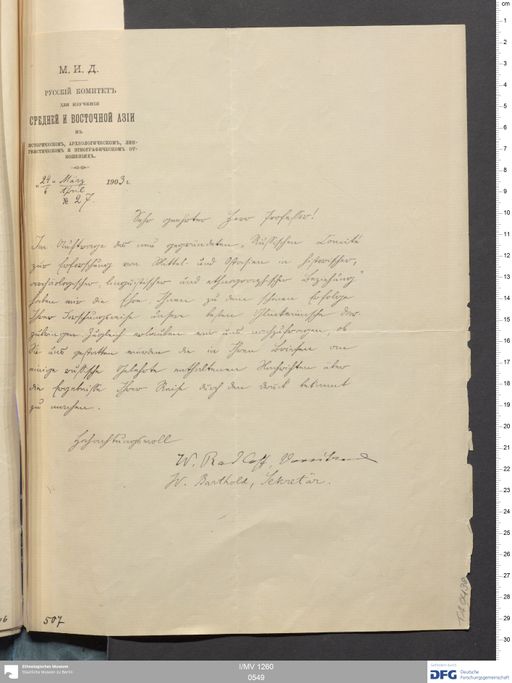 М. И. Д.
РУССКІЙ КОМИТЕТЪ
ДЛЯ ИЗУЧЕНІЯ
СРЕДНЕЙ И ВОСТОЧНОЙ АЗІИ
ВЪ
ИСТОРИЧЕСКОМЪ, АРХЕОЛОГИЧЕСКОМЪ, ЛИН-
ГВИСТИЧЕСКОМЪ И ЭТНОГРАФИЧЕСКОМЪ ОТ-
НОШЕНІЯХЪ.
„24/6“ März/April 1903 г.
№ 27
Sehr geehrter Herr Professor!
Im Auftrage des neu gegründeten „Russischen Comité
zur Erforschung von Mittel- und Ostasien in historischer,
archäologischer, linguistischer und ethnographischer Beziehung"
haben wir die Ehre, Ihnen zu dem schönen Erfolge
Ihrer Forschungsreise unsere besten Glückwünsche dar-
zubringen. Zugleich erlauben wir uns nachzufragen, ob
Sie uns gestatten würden die in Ihren Briefen an
einige russische Gelehrte enthaltenen Nachrichten über
die Ergebnisse Ihrer Reise durch den Druck bekannt
zu machen.
Hochachtungsvoll
W. Radloff, Vorsitzender
W. Barthold, Sekretär.
507
Ethnologisches Museum
Staatliche Museen zu Berlin
I/MV 1260
0549
DFG Deutsche
Forschungsgemeinschaft
cm
1
2
3
4
5
6
7
8
9
10
11
12
13
14
15
16
17
18
19
20
21
22
23
24
25
26
27
28
29
30